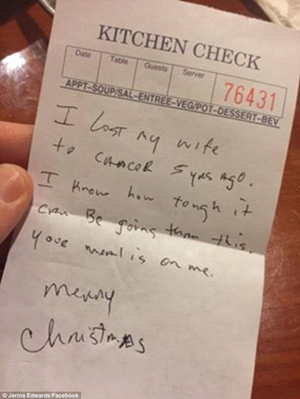 KITCHEN CHECK
Date Table Guests Server
76431
APPT-SOUP/SAL-ENTREE-VEG/POT-DESSERT-BEV
I Lost my wife
to CANCOR 5 yrs AGO.
I know how tough it
can Be going thru this.
your meal is on me.
merry
christmas
© Jerina Edwards/Facebook